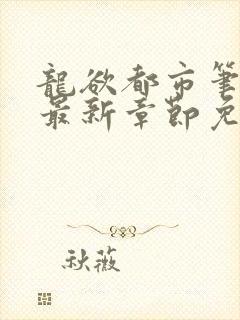 龍欲都市筆
最新章節免
秋薇